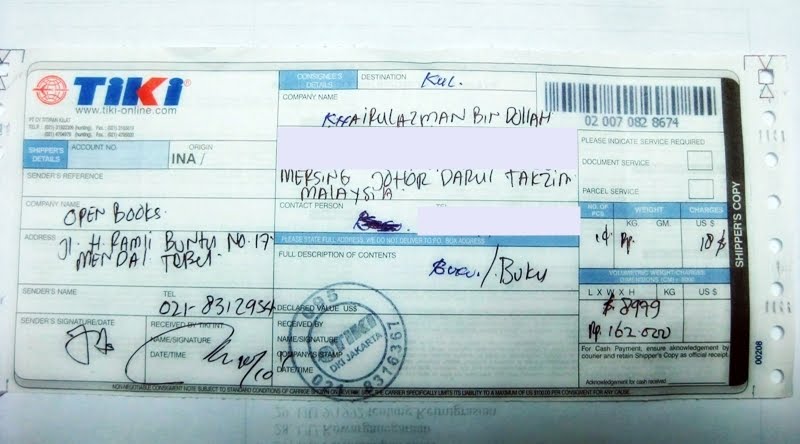 TIKI®
www.tiki-online.com
PT CV TITIPAN KILAT
SHIPPER'S DETAILS
ACCOUNT NO.
ORIGIN
INA /
SENDER'S REFERENCE
COMPANY NAME
OPEN BOOKS
ADDRESS
MENDALI TEBET
SENDER'S NAME
TEL
021-8312954
SENDER'S SIGNATURE/DATE
RECEIVED BY TIKI INT.
NAME/SIGNATURE
DATE/TIME
CONSIGNEE'S DETAILS
DESTINATION
KUL.
COMPANY NAME
KHAIRULAZMAN BIN DOLLAH
MERSING JOHOR DARUL TAKZIM
MALAYSIA
CONTACT PERSON
PLEASE STATE FULL ADDRESS, WE DO NOT DELIVER TO P.O. BOX ADDRESS
FULL DESCRIPTION OF CONTENTS
BUKU / BUKU
DECLARED VALUE US$
RECEIVED BY
NAME/SIGNATURE
COMPANY'S STAMP
DATE/TIME
TIKI
DKI JAKARTA
02 007 082 8674
PLEASE INDICATE SERVICE REQUIRED
DOCUMENT SERVICE
PARCEL SERVICE
NO. OF PCS.
WEIGHT
CHARGES
KG.
GM.
US $
18 $
VOLUMETRIC WEIGHT/CHARGES
L X W X H
KG
US $
$ 8999
Rp. 162.000
For Cash Payment, ensure acknowledgement by
courier and retain Shipper's Copy as official receipt.
Acknowledgement for cash received
SHIPPER'S COPY
00208
NON-NEGOTIABLE CONSIGNMENT NOTE SUBJECT TO STANDARD CONDITIONS OF CARRIAGE